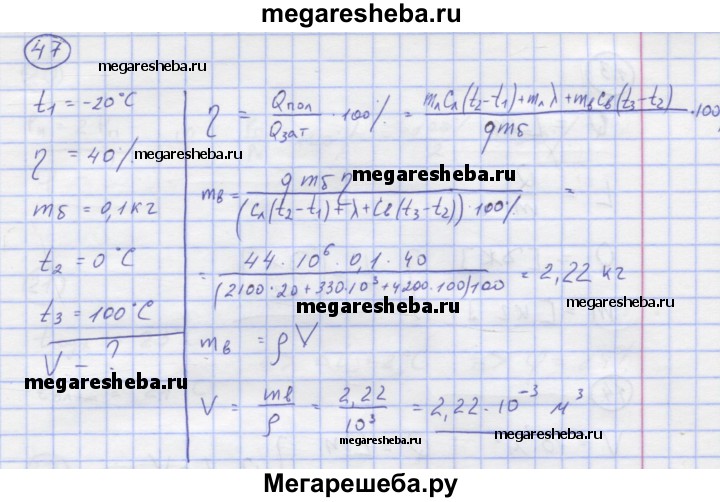 megaresheba.ru
47
megaresheba.ru
t₁ = -20°C
η = 40%
megaresheba.ru
mб = 0,1 кг
t₂ = 0°C
t₃ = 100°C
V - ?
megaresheba.ru
η = Qпол / Qзат · 100% = (mл cл (t₂ - t₁) + mл λ + mв cв (t₃ - t₂)) / (q mб) · 100
megaresheba.ru
megaresheba.ru
mв = q mб η / ((cл (t₂ - t₁) + λ + cв (t₃ - t₂)) · 100%) =
= 44 · 10⁶ · 0,1 · 40 / ((2100 · 20 + 330 · 10³ + 4200 · 100) 100) = 2,22 кг
megaresheba.ru
mв = ρ V
V = mв / ρ = 2,22 / 10³ = 2,22 · 10⁻³ м³
megaresheba.ru
megaresheba.ru
Мегарешеба.ру